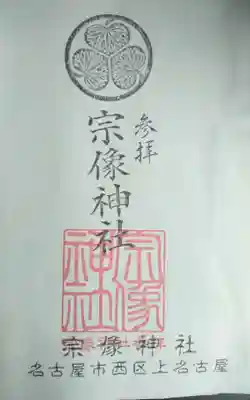 参拝
宗像神社
宗像神社
宗像神社
名古屋市西区上名古屋